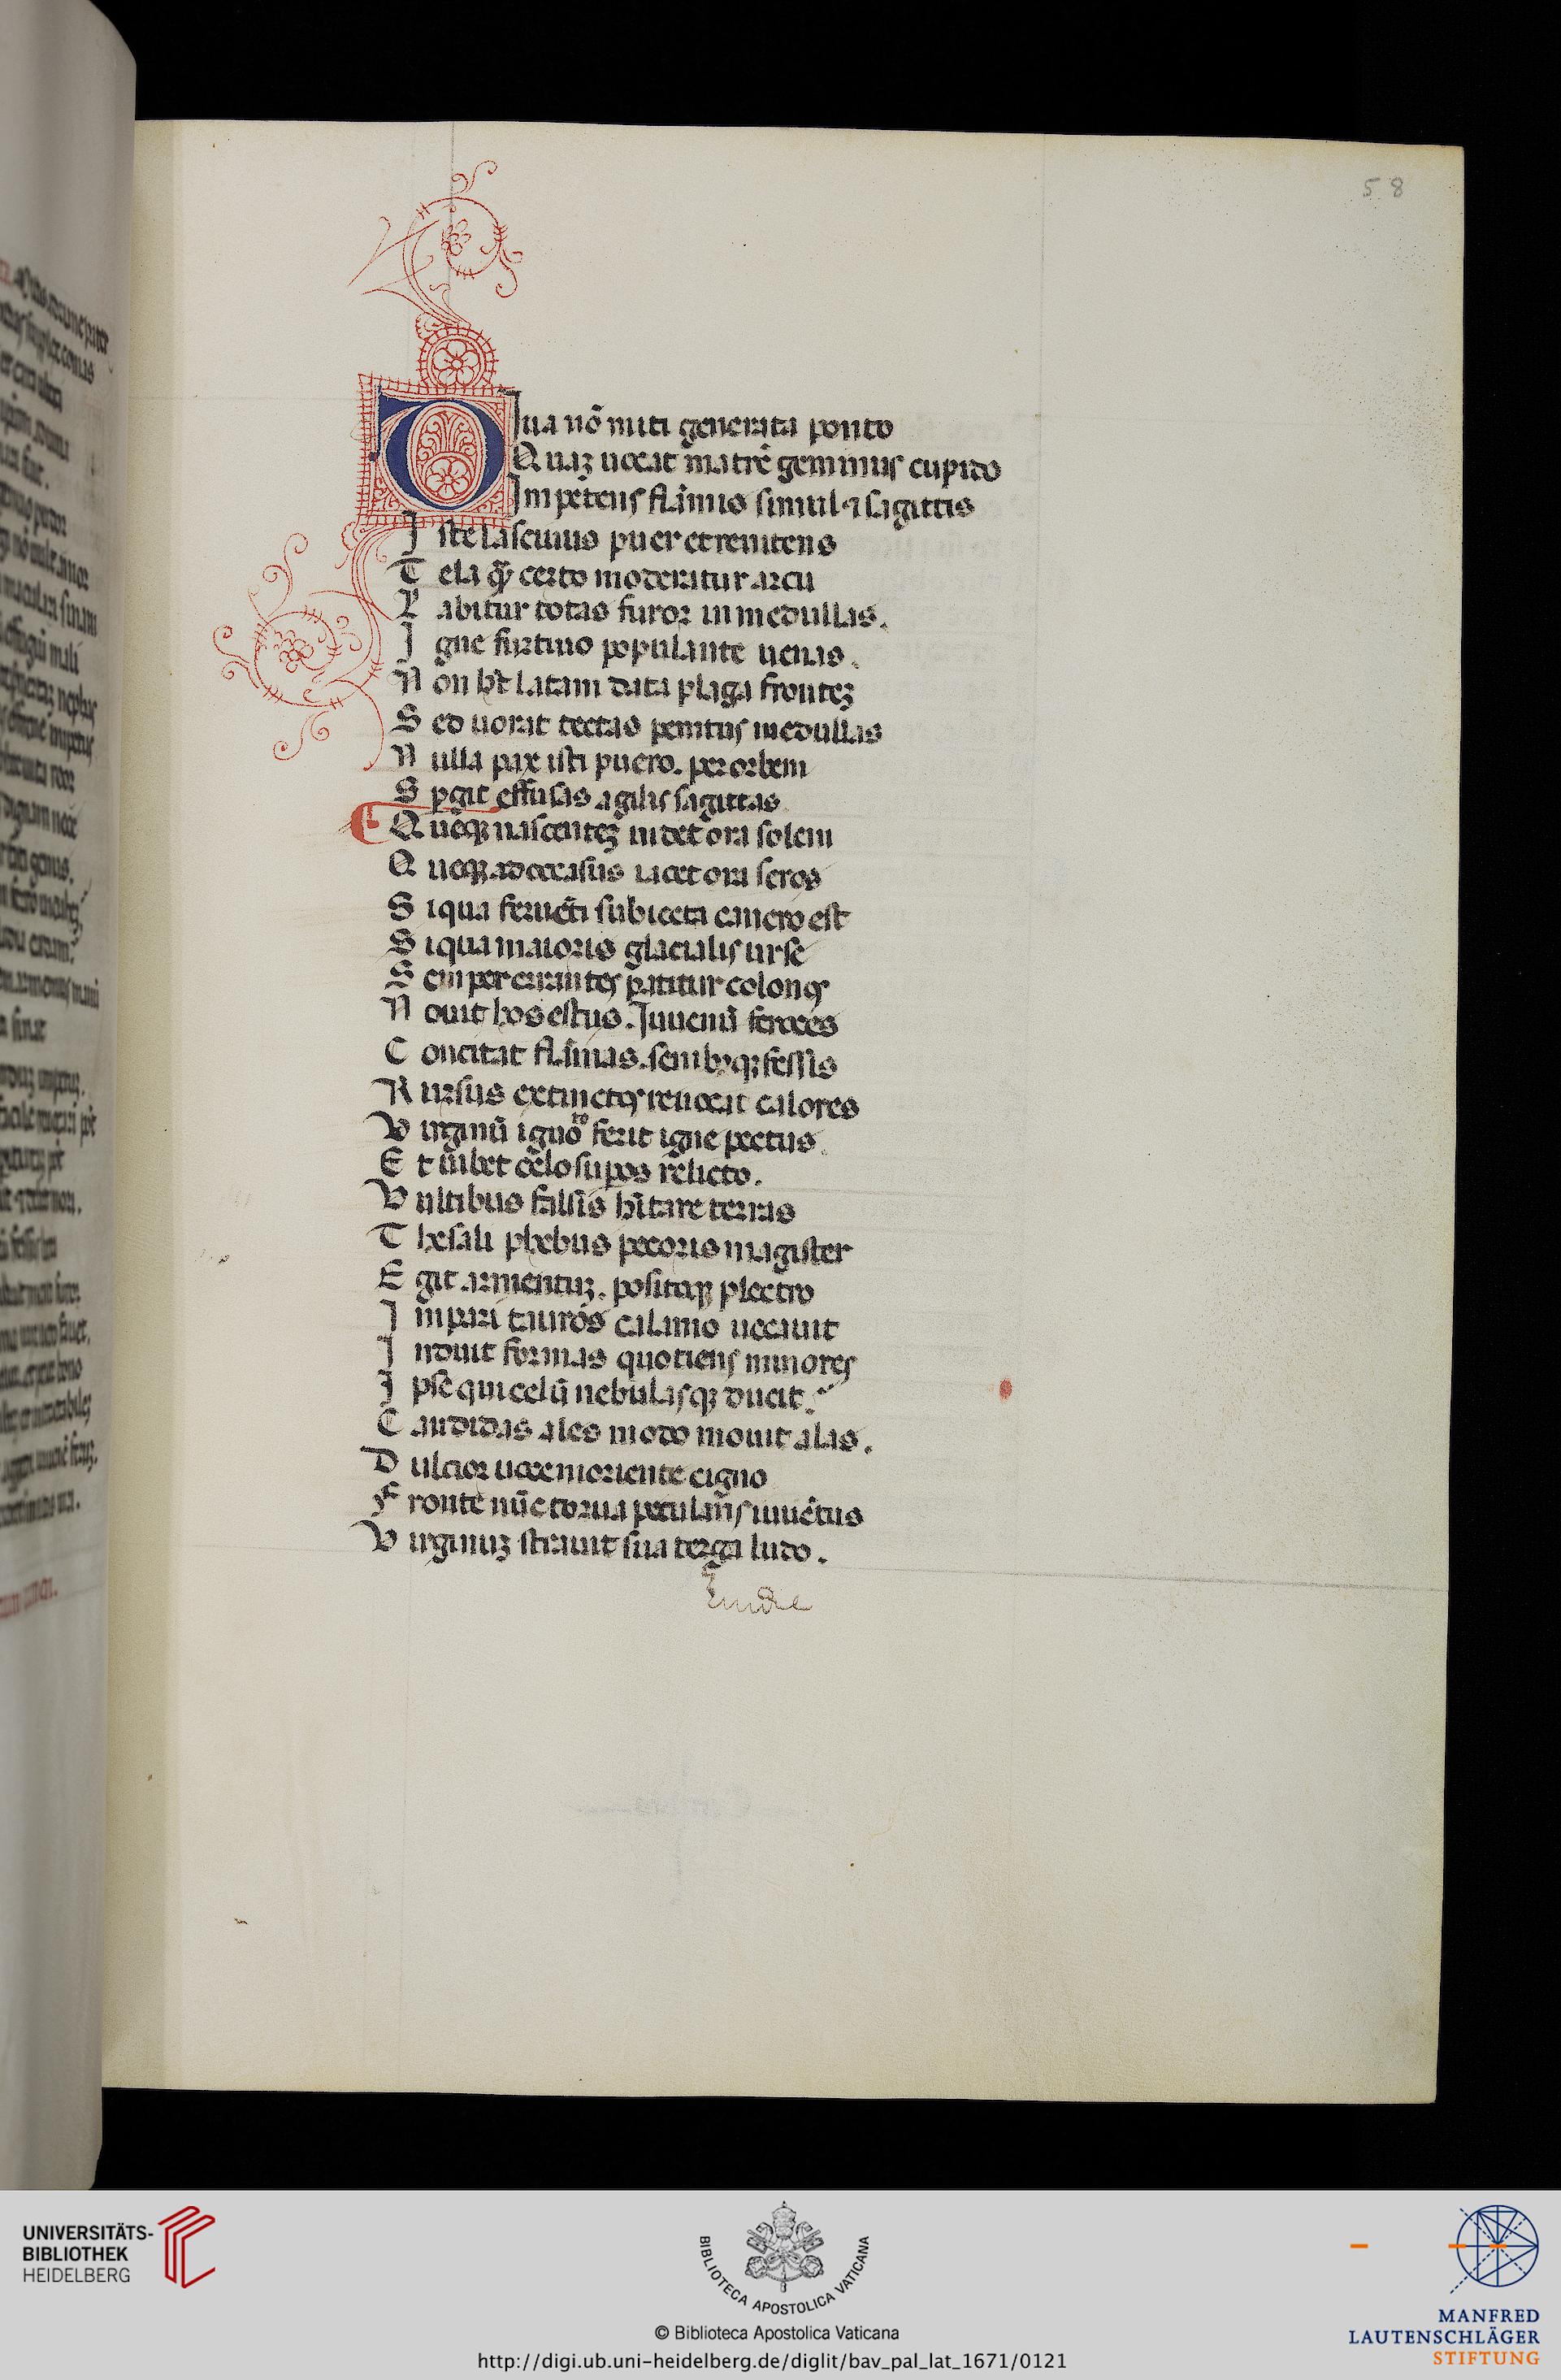 58
DIua nō miti generata ponto
Quaꝫ uocat matrē geminus cupido
Impotens flāmis simul ⁊ sagittis
Iste lasciuus puer et renitens
Tela qͣꝫ certo moderatur arcu
Labitur totas furor in medullas.
Igne furtiuo populante uenas.
Non hꝫ latam data plaga fronteꝫ
Sed uorat tectas penitus medullas
Nulla pax isti puero. per orbem
Spgit effusas agilis sagittas
Quēqꝫ nascenteꝫ uidet ora solem
Queqꝫ ad occasus iacet ora seros
Siqua feruēti subiecta cancro est
Siqua maioris glacialis urse
Semper errantes patitur colonos
Nouit hos estus. Iuuenū feroces
Concitat flāmas. senibꝫqꝫ fessis
Rursus extinctos reuocat calores
Virginū ignoᵗᵒ ferit igne pectus.
Et iubet celo supos relicto.
Vultibus falsis hītare terras
Thesali phebus pecoris magister
Egit armentuꝫ. positoqꝫ plectro
Impari tauros calamo uocauit
Induit formas quotiens minores
Ipse qui celū nebulasqꝫ ducit.
Candidas ales modo mouit alas.
Dulcior uoce moriente cigno
Fronte nūc torua petulans iuuēcus
Virginuꝫ strauit sua terga ludo.
UNIVERSITÄTS-
BIBLIOTHEK
HEIDELBERG
BIBLIOTECA APOSTOLICA VATICANA
© Biblioteca Apostolica Vaticana
http://digi.ub.uni-heidelberg.de/diglit/bav_pal_lat_1671/0121
MANFRED
LAUTENSCHLÄGER
STIFTUNG